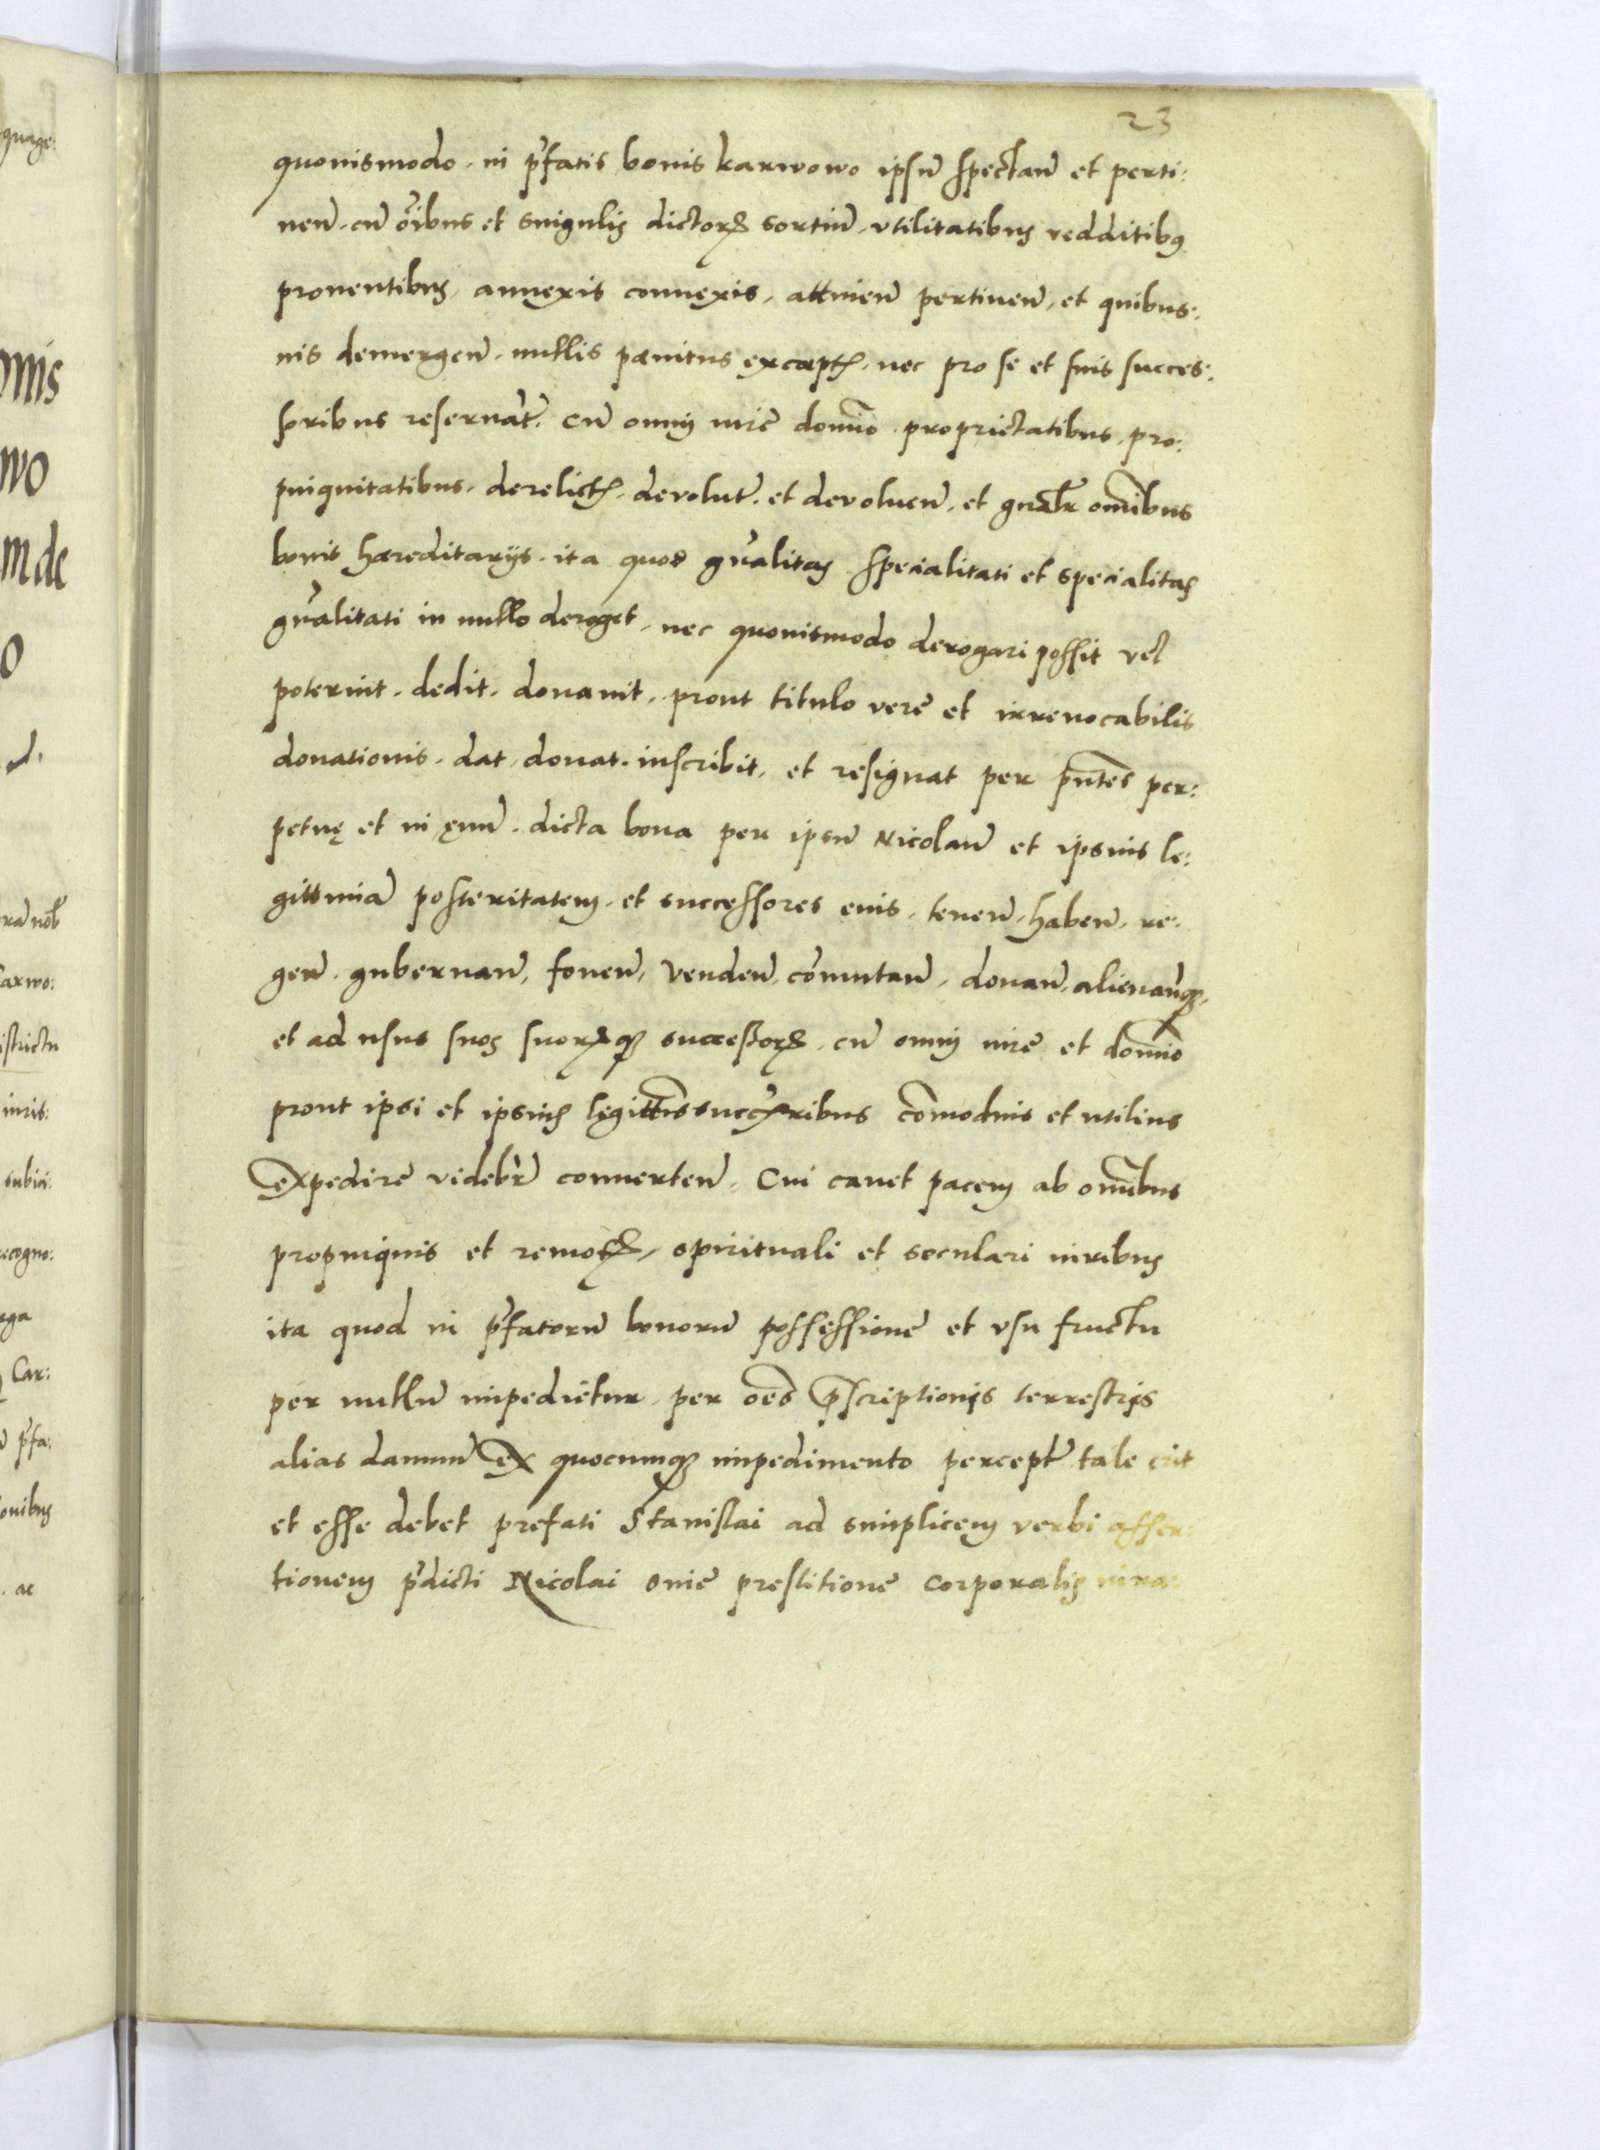 23
quouismodo. in p̄fatis bonis karwowo ipsū spectan̄ et perti:
nen̄. cū oībus et singulis dictorꝝ sortiū. vtilitatibus redditibꝯ
prouentibus, annexis connexis, attinen̄ pertinen̄, et quibus:
uis demergen̄. nullis pænitus exceptꝭ. nec pro se et suis succes:
soribus reseruat̄. Cū omni iure domīo. proprietatibus, pro:
pinquitatibus. derelictꝭ. deuolut̄. et deuoluen̄. et gnalr̄ omībus
bonis hæreditarijs. ita quod gn̄alitas specialitati et specialitas
gn̄alitati in nullo deroget, nec quouismodo derogari possit vel
poterint. dedit. donauit. prout titulo vere et irreuocabilis
donationis. dat, donat. inscribit. et resignat per p̄ntes per:
petuę et in ęuū. dicta bona per ipsū Nicolaū et ipsius le:
gittimā posteritatem. et successores eius, tenen̄. haben̄. re:
gen̄. gubernan̄, fouen̄, venden̄, cōmutan̄, donan̄, alienan̄qꝫ.
et ad usus suos suorꝝqꝫ successorꝝ. cū omni iure et domīo
prout ipsi et ipsius legittīs successoribus cōmodius et utilius
expedire videbr̄ conuerten̄. Cui cauet pacem ab omībus
propinquis et remotꝭ, spirituali et seculari iuribus
ita quod in p̄fatorū bonorū possessione et vsu fructu
per nullū impedietur. per oēs p̄scriptionis terrestris
alias damnū ex quocumqꝫ impedimento percept̄ tale erit
et esse debet prefati Stanislai ad simplicem verbi asser:
tionem p̄dicti Nicolai sine prestitione corporalis iura:
quage:
onis
wo
m de
o
d.
ra nob̄
Carwo:
istrictu
iuris:
subici:
recogno:
ega
Car:
p̄fa:
onibus
ac